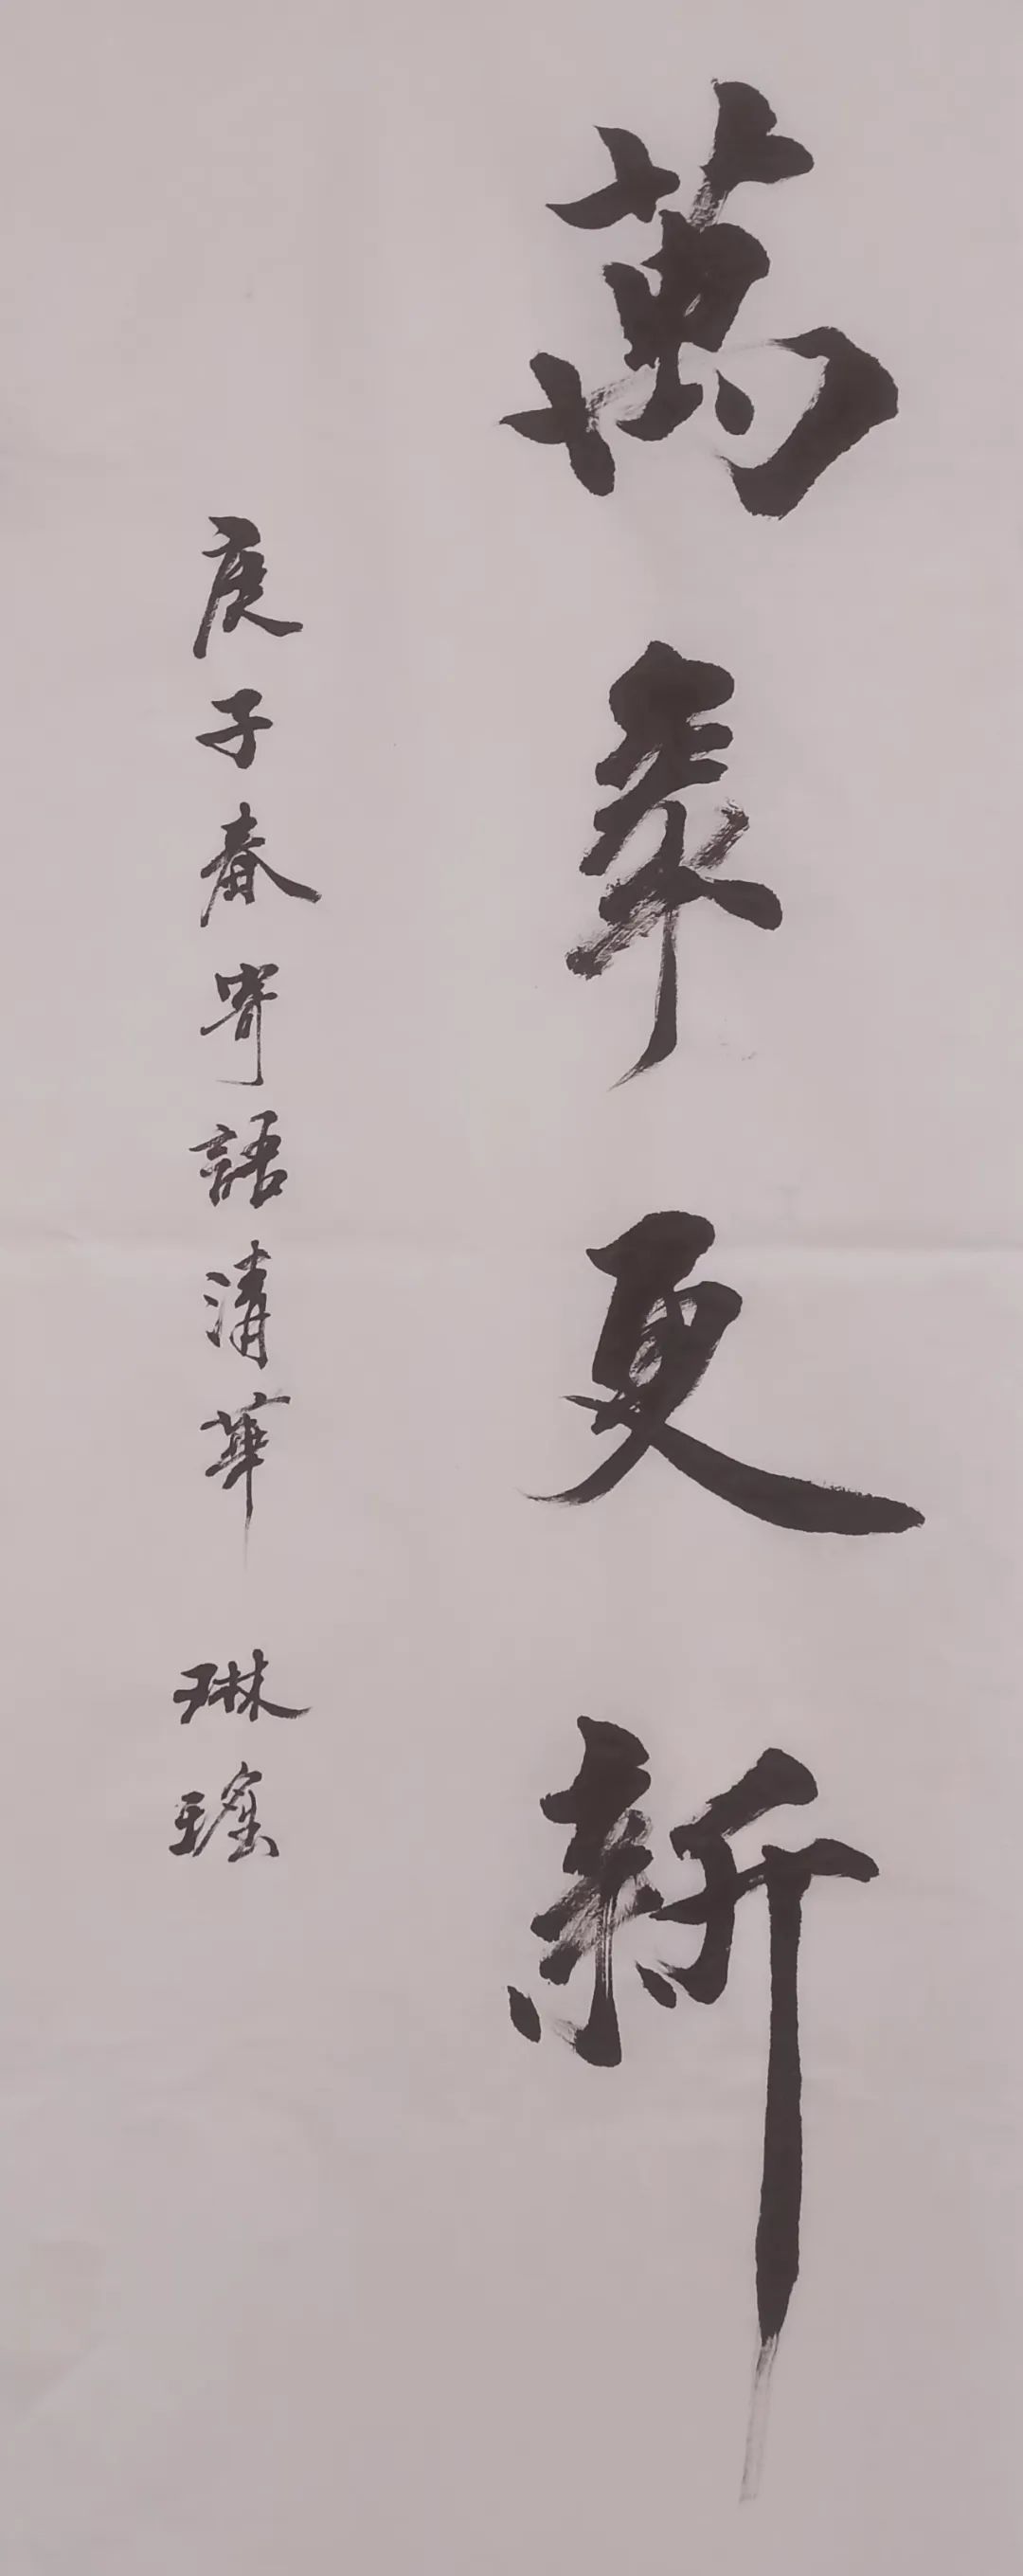 萬象更新
庚子春寄語清華 琳瑤